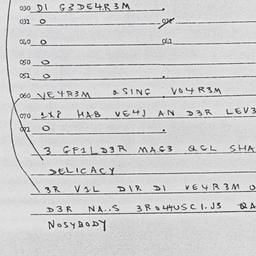 030 DI G3DE4R3M .
031 O
040 O 041
050 O
051 O .
060 VE4R3M QSING V04R3M
070 1X? HAB VE4J AN D3R LEV3
072 O .
3 GF1LD3R MAG3 QGL SHA
DELICACY
3R V1L DIR DI VE4R3M U
D3R NA..S 3R044USCI.JS QA
NOSYBODY